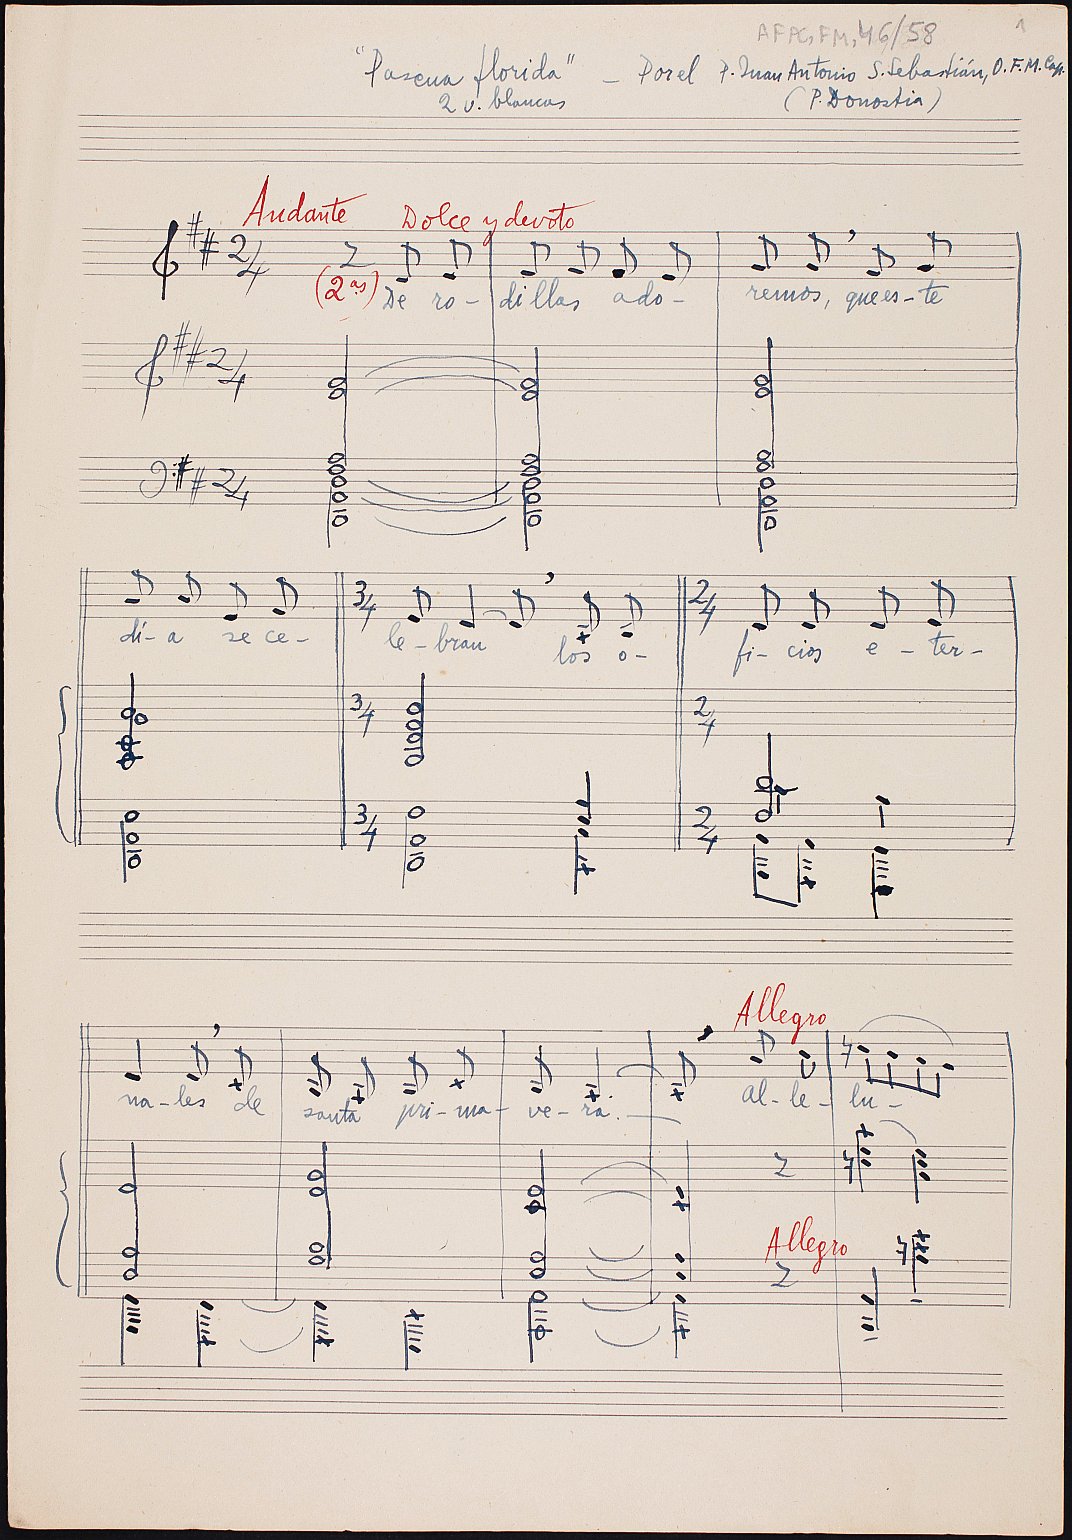 AFPC, FM, 46/58
1
"Pascua florida" - Por el P. Juan Antonio S. Sebastián, O.F.M. Cap.
2 v. blancas (P. Donostia)
Andante Dolce y devoto
2/4
(2as) De ro- dillas ado- remos, que es-te
2/4
2/4
3/4 2/4
dí-a se ce- le-bran los o- fi-cios e-ter-
3/4 2/4
3/4 2/4
Allegro
na-les de santa pri-ma-ve-ra. Al-le-lu-
Allegro